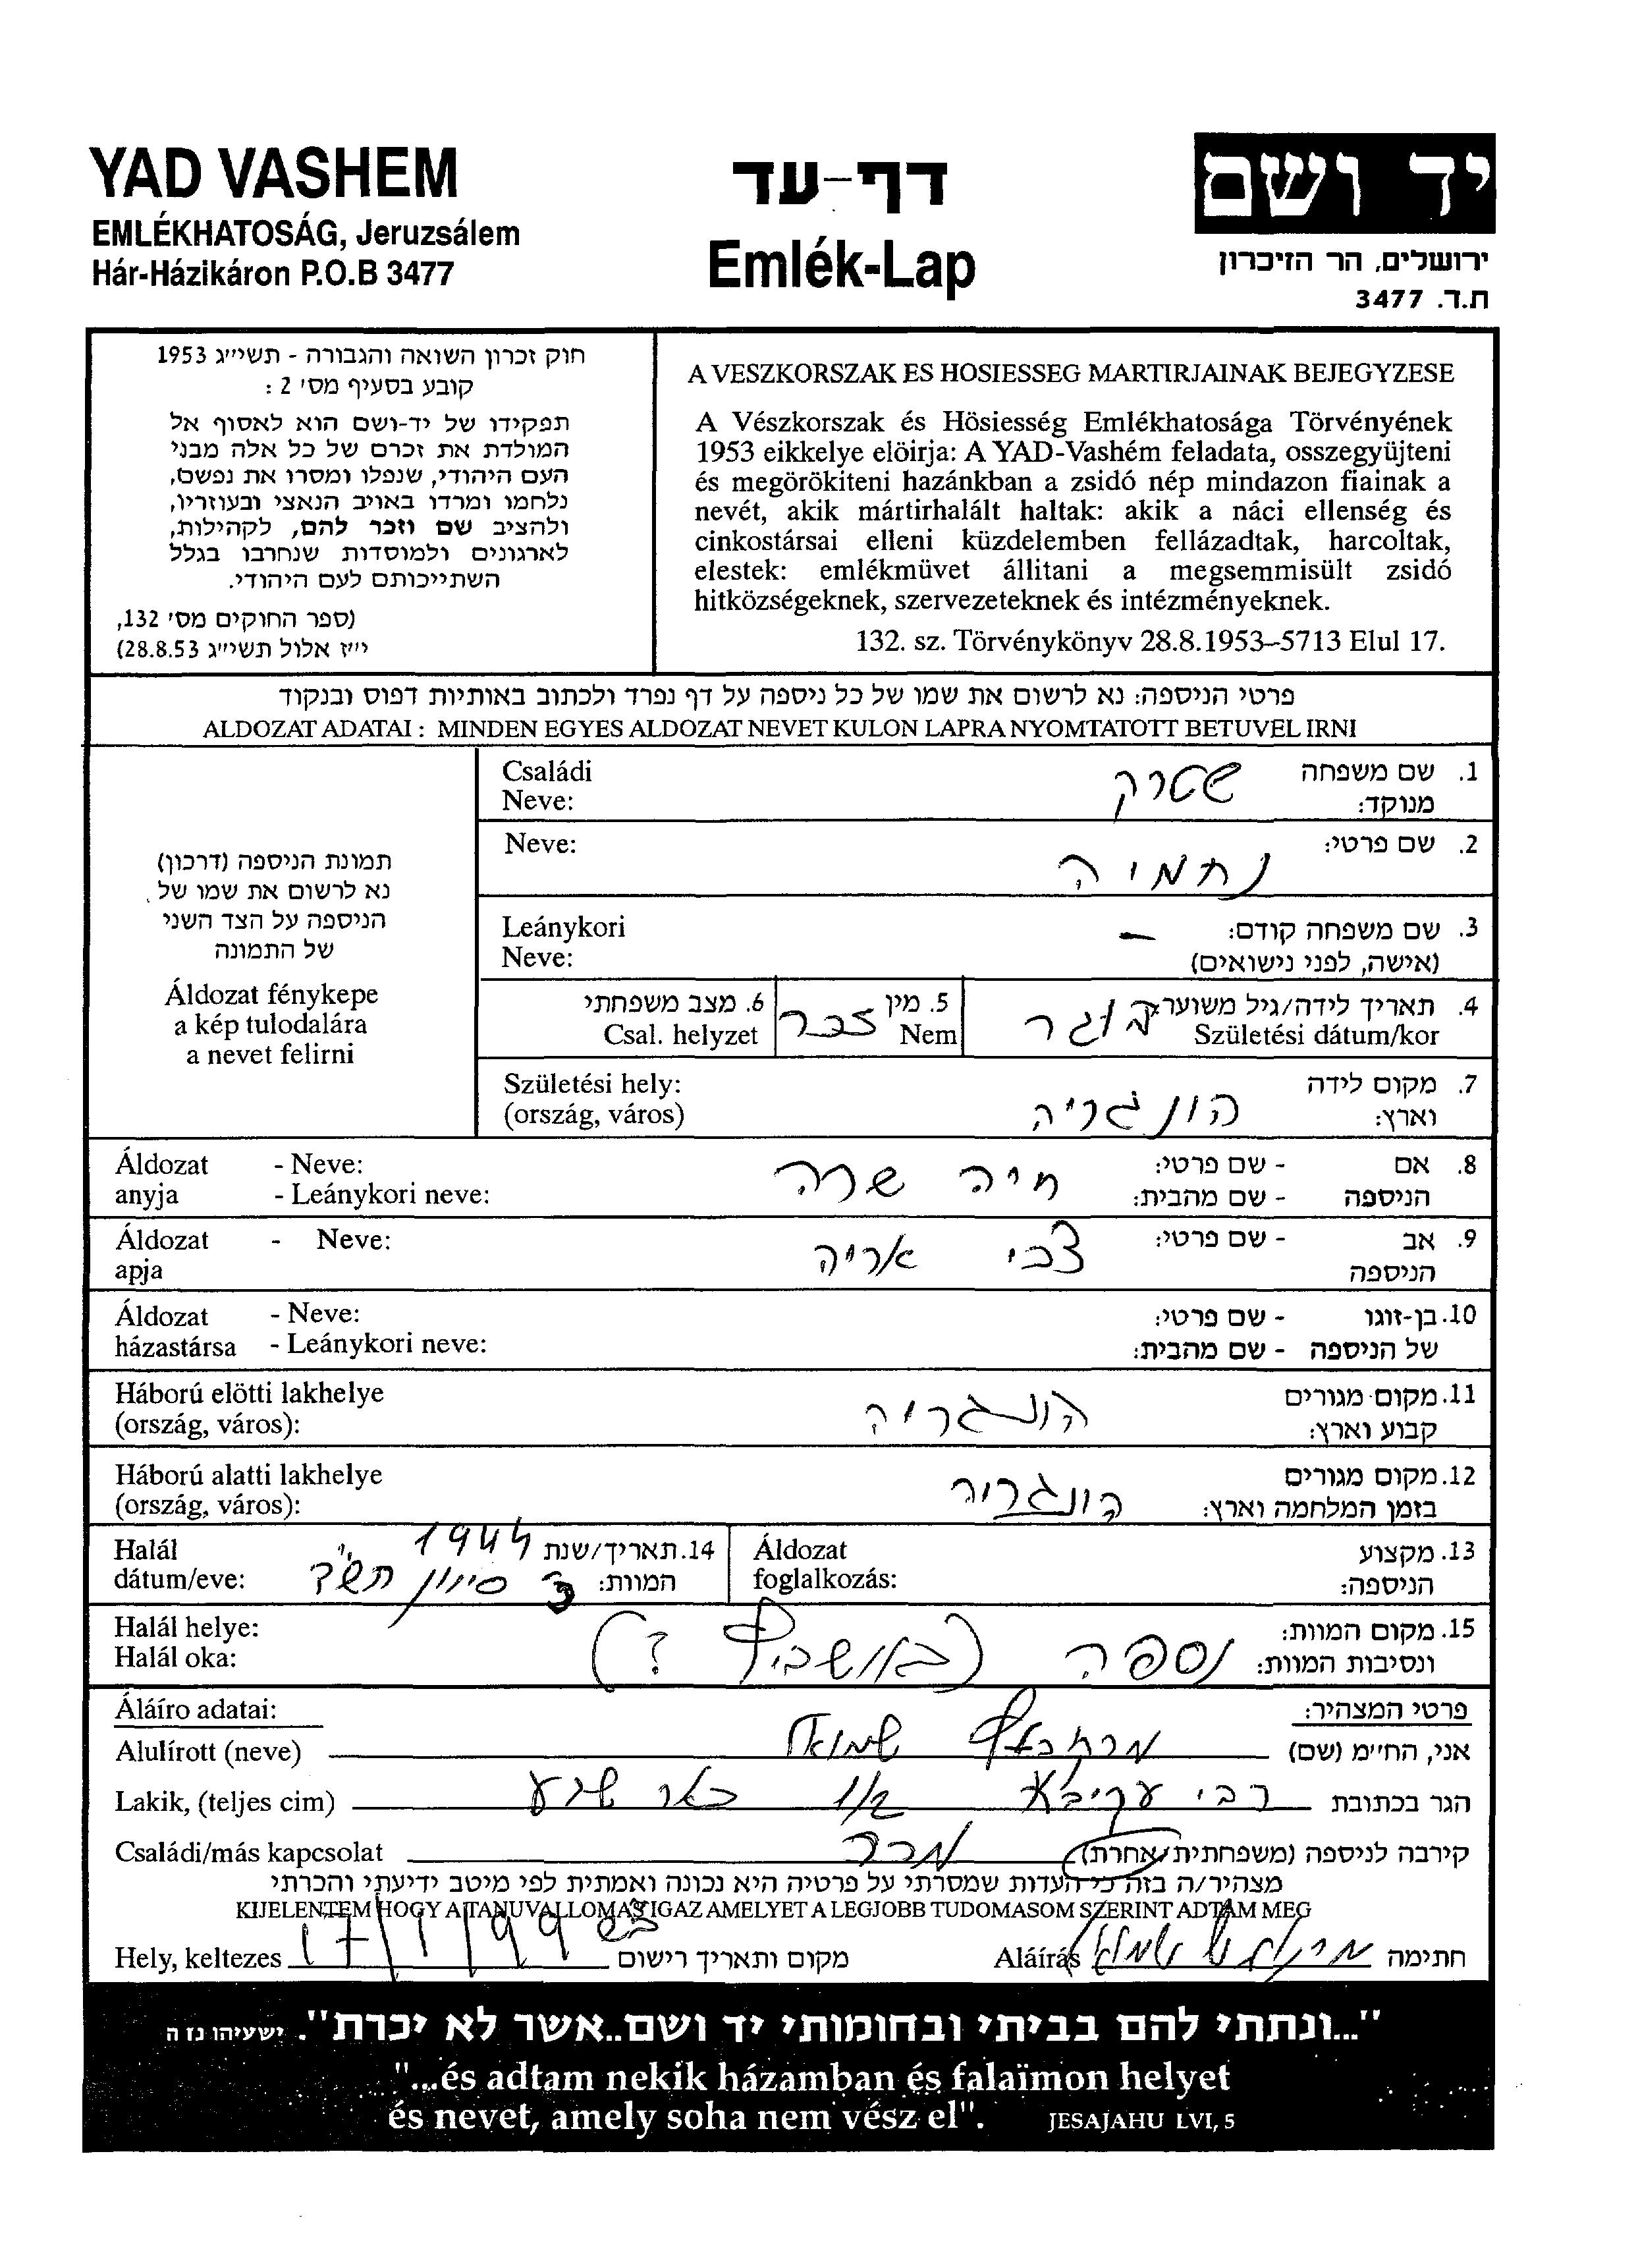 YAD VASHEM
EMLÉKHATOSÁG, Jeruzsálem
Hár-Házikáron P.O.B 3477
דף-עד
Emlék-Lap
יד ושם
ירושלים, הר הזיכרון
ת.ד. 3477
חוק זכרון השואה והגבורה - תשי״ג 1953
קובע בסעיף מס׳ 2 :
תפקידו של יד-ושם הוא לאסוף אל
המולדת את זכרם של כל אלה מבני
העם היהודי, שנפלו ומסרו את נפשם,
נלחמו ומרדו באויב הנאצי ובעוזריו,
ולהציב שם וזכר להם, לקהילות,
לארגונים ולמוסדות שנחרבו בגלל
השתייכותם לעם היהודי.
(ספר החוקים מס׳ 132,
י״ז אלול תשי״ג 28.8.53)
A VESZKORSZAK ES HOSIESSEG MARTIRJAINAK BEJEGYZESE
A Vészkorszak és Hösiesség Emlékhatosága Törvényének
1953 eikkelye elöirja: A YAD-Vashém feladata, osszegyüjteni
és megörökiteni hazánkban a zsidó nép mindazon fiainak a
nevét, akik mártirhalált haltak: akik a náci ellenség és
cinkostársai elleni küzdelemben fellázadtak, harcoltak,
elestek: emlékmüvet állitani a megsemmisült zsidó
hitközségeknek, szervezeteknek és intézményeknek.
132. sz. Törvénykönyv 28.8.1953–5713 Elul 17.
פרטי הניספה: נא לרשום את שמו של כל ניספה על דף נפרד ולכתוב באותיות דפוס ובנקוד
ALDOZAT ADATAI : MINDEN EGYES ALDOZAT NEVET KULON LAPRA NYOMTATOTT BETUVEL IRNI
תמונת הניספה (דרכון)
נא לרשום את שמו של
הניספה על הצד השני
של התמונה
Áldozat fénykepe
a kép tulodalára
a nevet felirni
1. שם משפחה שטרק Családi
מנוקד: Neve:
2. שם פרטי: נחמיה Neve:
3. שם משפחה קודם: - Leánykori
(אישה, לפני נישואים) Neve:
4. תאריך לידה/גיל משוער מבוגר 5. מין זכר 6. מצב משפחתי
Születési dátum/kor Nem Csal. helyzet
7. מקום לידה הונגריה Születési hely:
וארץ: (ország, város)
8. אם - שם פרטי: חיה שרה Áldozat - Neve:
הניספה - שם מהבית: anyja - Leánykori neve:
9. אב - שם פרטי: צבי אריה Áldozat - Neve:
הניספה apja
10. בן-זוגו - שם פרטי: Áldozat - Neve:
של הניספה - שם מהבית: házastársa - Leánykori neve:
11. מקום מגורים הונגריה Háború elötti lakhelye
קבוע וארץ: (ország, város):
12. מקום מגורים הונגריה Háború alatti lakhelye
בזמן המלחמה וארץ: (ország, város):
13. מקצוע Áldozat 14. תאריך/שנת 1944 Halál
הניספה: foglalkozás: המוות: סיוון תש״ד dátum/eve:
15. מקום המוות: נספה (באושביץ ?) Halál helye:
ונסיבות המוות: Halál oka:
פרטי המצהיר: Áláíro adatai:
אני, הח״מ (שם) שמואל Alulírott (neve)
הגר בכתובת רבי עקיבא באר שבע Lakik, (teljes cim)
קירבה לניספה (משפחתית/אחרת) מכר Családi/más kapcsolat
מצהיר/ה בזה כי העדות שמסרתי על פרטיה היא נכונה ואמתית לפי מיטב ידיעתי והכרתי
KIJELENTEM HOGY A TANUVALLOMAS IGAZ AMELYET A LEGJOBB TUDOMASOM SZERINT ADTAM MEG
חתימה שמואל Aláírás מקום ותאריך רישום ב״ש 17/1/99 Hely, keltezes
"...ונתתי להם בביתי ובחומותי יד ושם..אשר לא יכרת". ישעיהו נו ה
"...és adtam nekik házamban és falaïmon helyet
és nevet, amely soha nem vész el". JESAJAHU LVI, 5